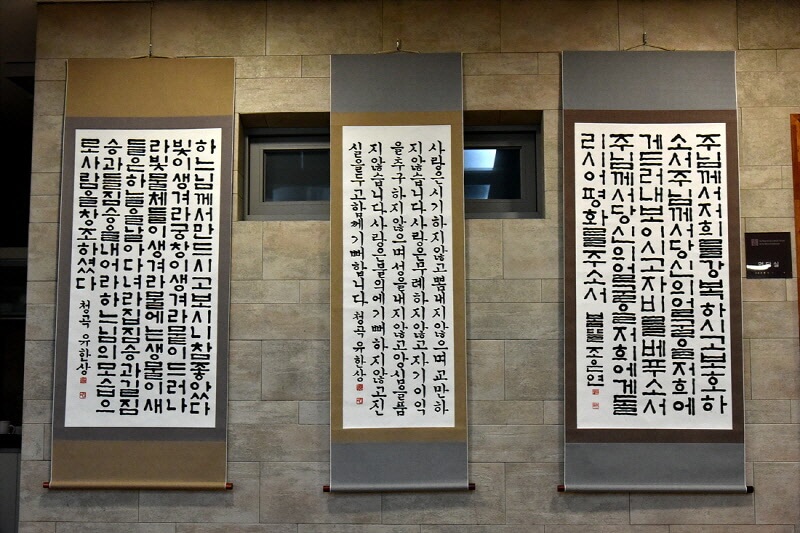 하느님께서 만드시고 보시니 참 좋았다
빛이 생겨라 궁창이 생겨라 뭍이 드러나
라 빛물체들이 생겨라 물에는 생물이 새
들은 하늘을 날아다녀라 집짐승과 길짐
승과 들짐승을 내어라 하느님의 모습으
로 사람을 창조하셨다 청곡 유한상
사랑은 시기하지 않고 뽐내지 않으며 교만하
지 않습니다 사랑은 무례하지 않고 자기 이익
을 추구하지 않으며 성을 내지 않고 앙심을 품
지 않습니다 사랑은 불의에 기뻐하지 않고 진
실을 두고 함께 기뻐합니다 청곡 유한상
주님께서 저희를 강복하시고 보호하
소서 주님께서 당신의 얼굴을 저희에
게 드러내 보이시고 자비를 베푸소서
주님께서 당신의 얼굴을 저희에게 돌
리시어 평화를 주소서 봄뜰 조은연